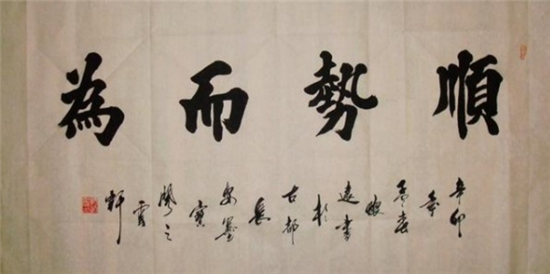 順勢而為
辛卯年孟春
遠書於古都長安墨寶閣之霄軒